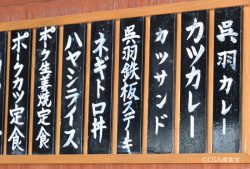 呉羽カレー
カツカレー
カツサンド
呉羽鉄板ステーキ
ネギトロ丼
ハヤシライス
ポーク生姜焼定食
ポークカツ定食